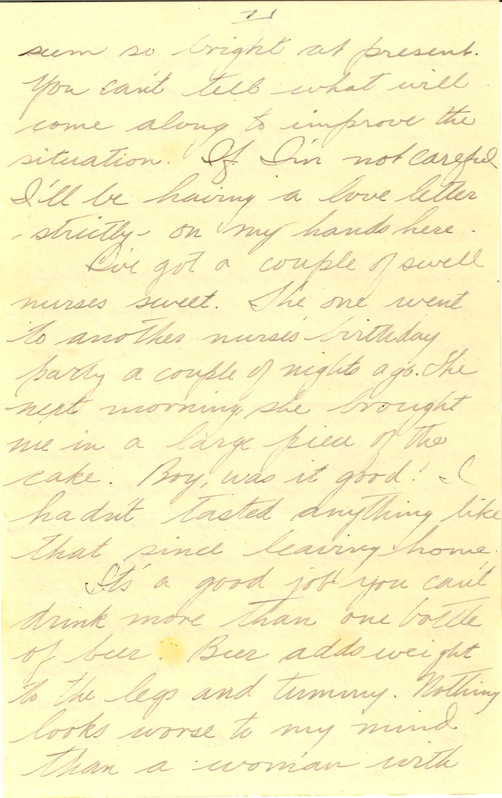 seem so bright at present.
You can't tell what will
come along to improve the
situation. If I'm not careful
I'll be having a love letter
- strictly - on my hands here.
I've got a couple of swell
nurses sweet. The one went
to another nurse's birthday
party a couple of nights ago. The
next morning she brought
me in a large piece of the
cake. Boy, was it good! I
hadn't tasted anything like
that since leaving home.
It's a good job you can't
drink more than one bottle
of beer. Beer adds weight
to the legs and tummy. Nothing
looks worse to my mind
than a woman with